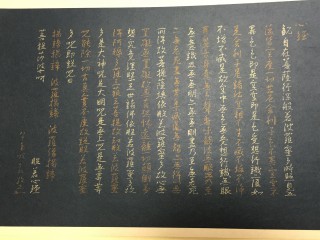 心經
觀自在菩薩行深般若波羅蜜多時照見五
蘊皆空度一切苦厄舍利子色不異空空不
異色色即是空空即是色受想行識亦復如
是舍利子是諸法空相不生不滅不垢不淨
不增不減是故空中無色無受想行識無眼
耳鼻舌身意無色聲香味觸法無眼界乃至
無意識界無無明亦無無明盡乃至無老死
亦無老死盡無苦集滅道無智亦無得以無
所得故菩提薩埵依般若波羅蜜多故心無
罣礙無罣礙故無有恐怖遠離顛倒夢
想究竟涅槃三世諸佛依般若波羅蜜多故
得阿耨多羅三藐三菩提故知般若波羅蜜
多是大神咒是大明咒是無上咒是無等等
咒能除一切苦真實不虛故說般若波羅蜜
多咒即說咒曰
揭諦揭諦 波羅揭諦 波羅僧揭諦
菩提薩婆訶 般若心經